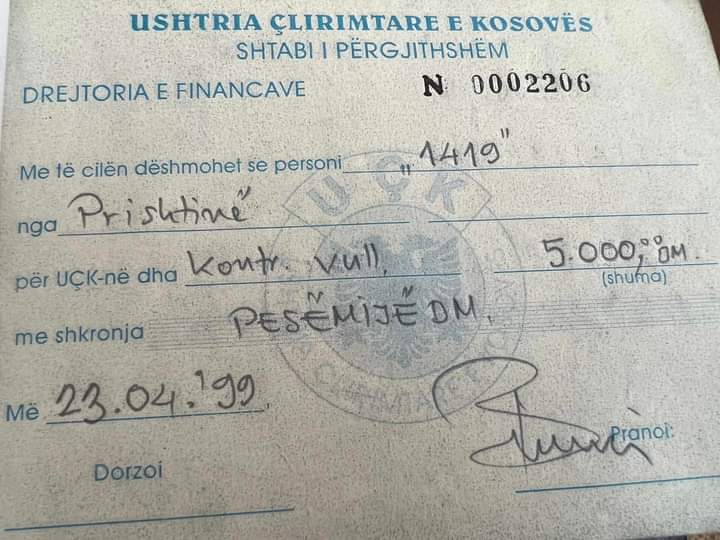 USHTRIA ÇLIRIMTARE E KOSOVËS
SHTABI I PËRGJITHSHËM
DREJTORIA E FINANCAVE N 0002206
Me të cilën dëshmohet se personi „1419”
nga Prishtinë
për UÇK-në dha Kontr. vull. 5.000,00 DM.
(shuma)
me shkronja PESËMIJË DM.
Më 23.04.'99
Pranoi:
Dorzoi
UÇK